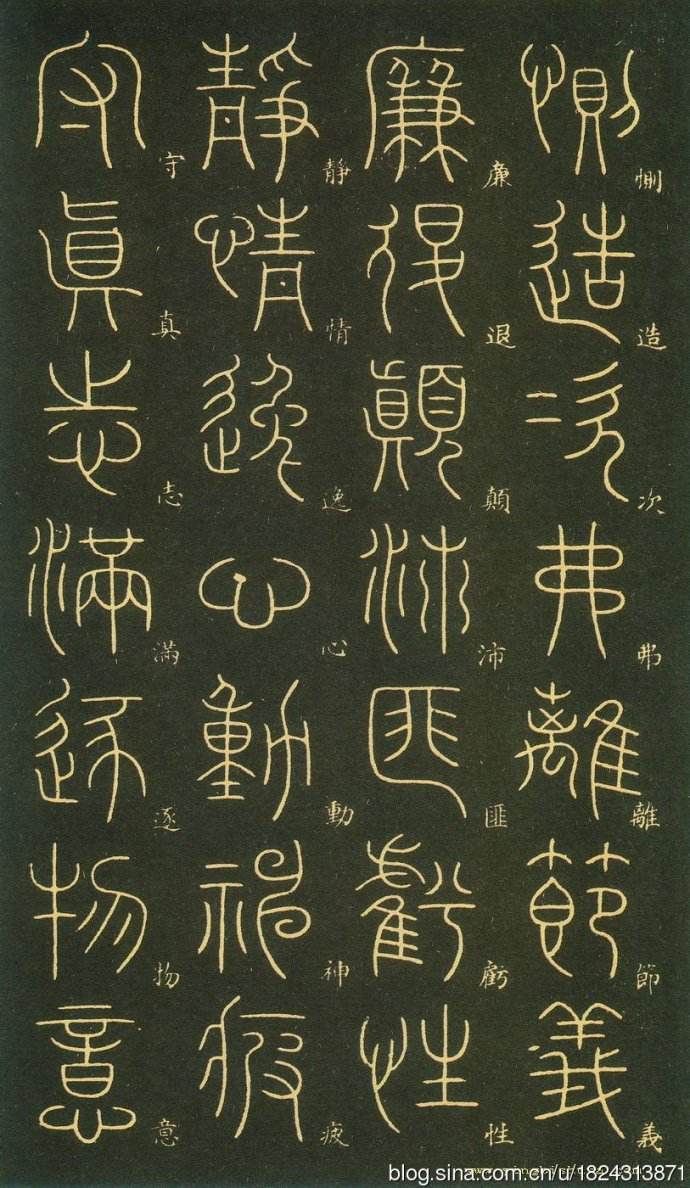 惻造次弗離節義
廉退顛沛匪虧性
靜情逸心動神疲
守真志滿逐物意
blog.sina.com.cn/u/1824313871